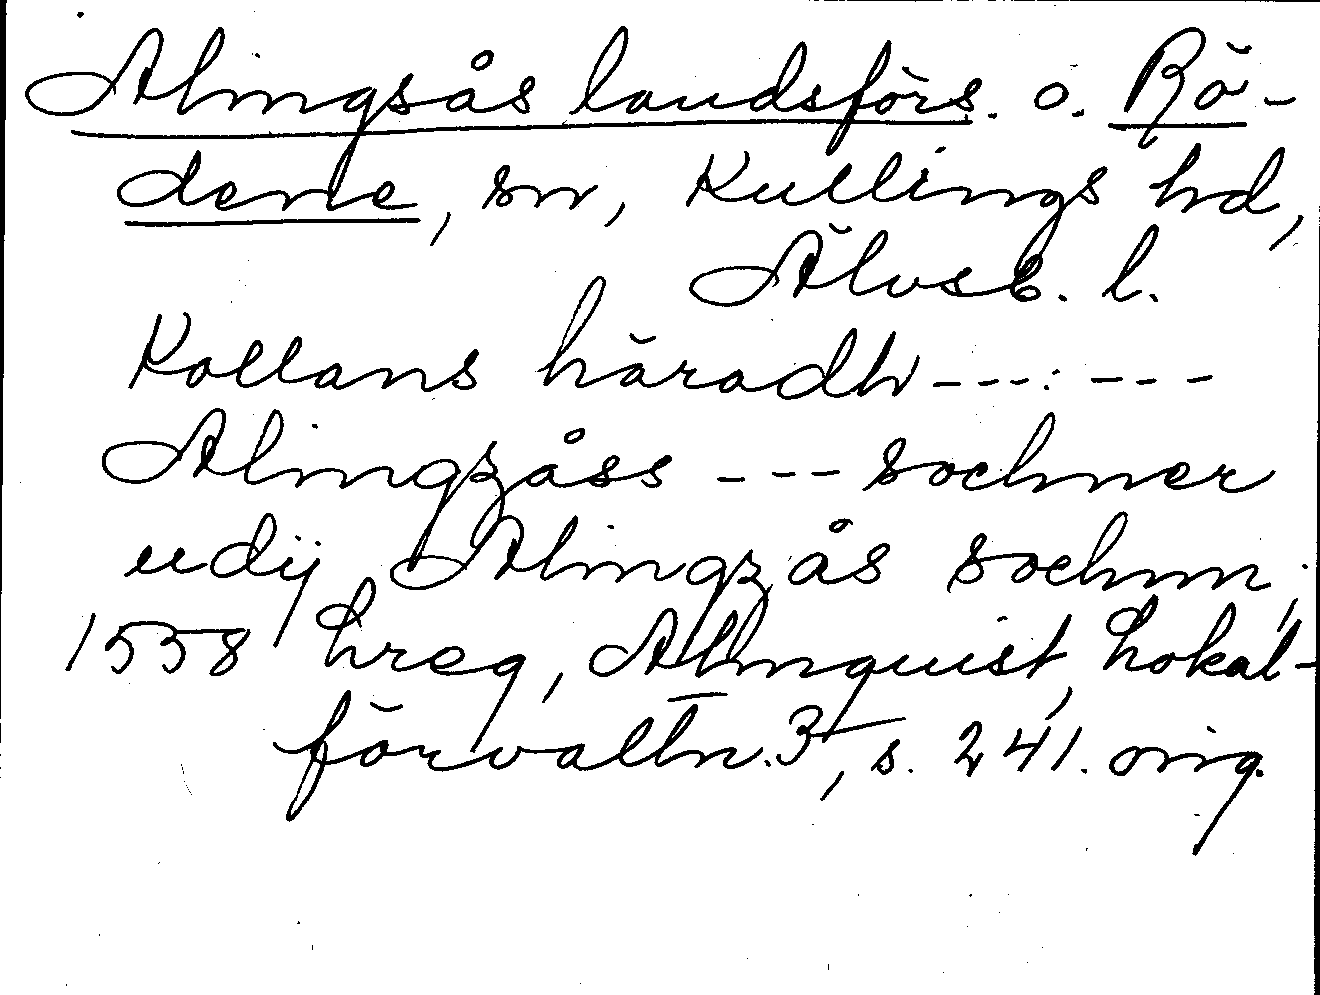 Alingsås landsförs. o. Rö-
dene, sn, Kullings hd,
Älvsb. l.
Kollans häradh --- ---
Alingzåss --- sochner
udij Alingzås sochnn,
1558 hreg, Almquist, Lokal-
förvaltn. 3, s. 241. orig.